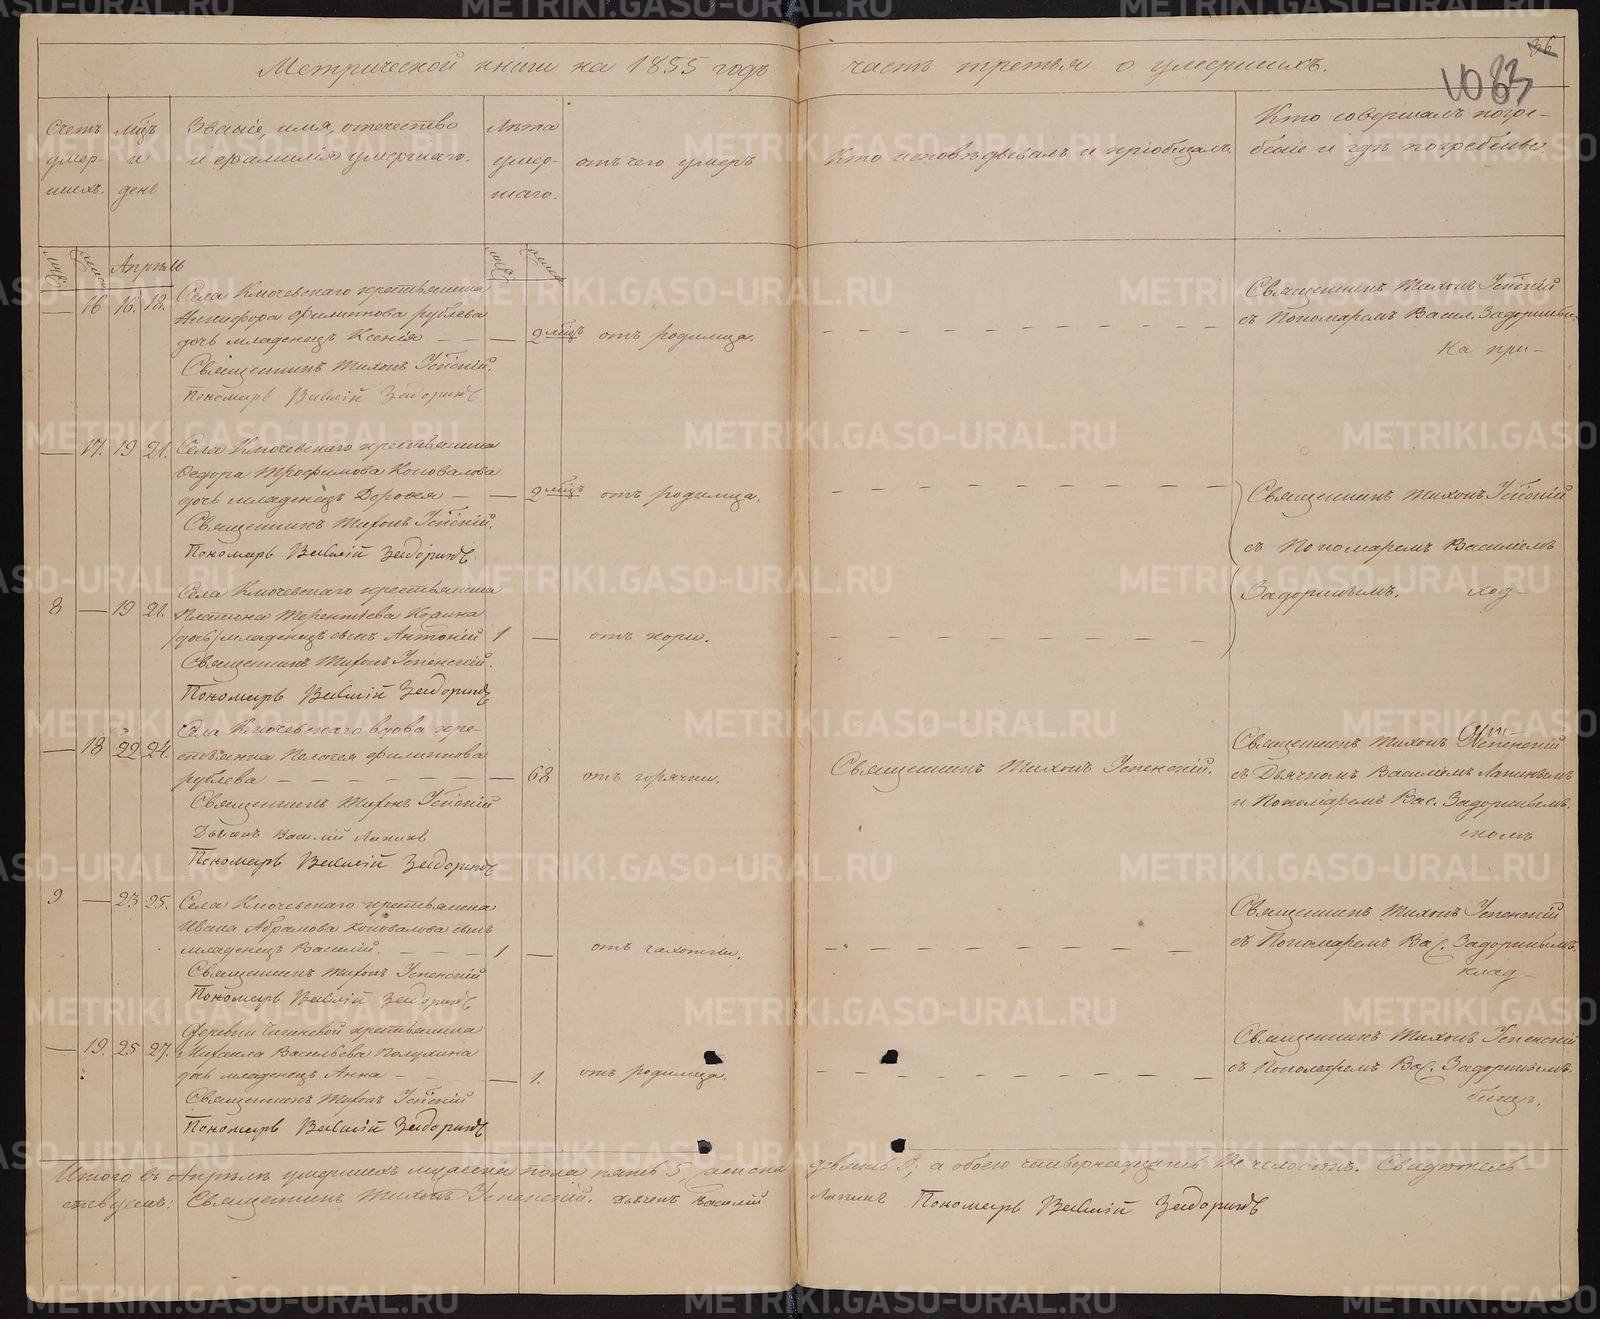 36
1083
Метрической книги на 1855 годъ часть третья о умершихъ.
Счетъ умер-шихъ.
мцъ и день
Званіе, имя, отечество и фамилія умершаго.
Лѣта умер-шаго.
отъ чего умеръ
Кто исповѣдывалъ и пріобщалъ.
Кто совершалъ погре-беніе и гдѣ погребены.
Апрѣль
— 16 16. 18.
Села Ключевскаго крестьянина
Никифора Филиппова рублева
дочь младенецъ Ксенія — — — 2 мцъ отъ родимца.
Священникъ Тихонъ Успскій.
Пономарь Василій Задоринъ
Священникъ Тихонъ Успскій
съ Пономаремъ Васил. Задоринымъ
На при-
— 17. 19 21.
Села Ключевскаго крестьянина
Федора Трофимова Коновалова
дочь младенецъ Дорофея — — 2 мцъ отъ родимца.
Священникъ Тихонъ Успскій.
Пономарь Василій Задоринъ.
Священникъ Тихонъ Успскій
съ Пономаремъ Василіемъ
Задоринымъ. ход-
8 — 19 21.
Села Ключевскаго крестьянина
Платона Терентьева
(дочь) младенецъ сынъ Антоній 1 — отъ кори.
Священникъ Тихонъ Успенскій.
Пономарь Василій Задоринъ
— 18 22 24.
Села Ключевскаго вдова кре-
стьянка Пелагея Филиппова
рублева — — — — 68 отъ горячки.
Священникъ Тихонъ Успенскій.
Священникъ Тихонъ Успскій
Дьячекъ Василій Лапинъ
Пономарь Василій Задоринъ
Священникъ Тихонъ Успенскій
съ Дьячкомъ Василіемъ Лапинымъ
и Пономаремъ Вас. Задоринымъ.
скомъ
9 — 23 25.
Села Ключевскаго крестьянина
Ивана Абрамова Коновалова сынъ
младенецъ Василій. — — — 1 — отъ чахотки.
Священникъ Тихонъ Успенскій
Пономарь Василій Задоринъ
Священникъ Тихонъ Успенскій
съ Пономаремъ Вас. Задоринымъ.
клад-
— 19. 25 27.
Деревни крестьянина
Михаила Васильева Полухина
дочь младенецъ Анна — — — 1. отъ родимца.
Священникъ Тихонъ Успскій
Пономарь Василій Задоринъ
Священникъ Тихонъ Успенскій
съ Пономаремъ Вас. Задоринымъ.
бищѣ.
Итого въ Апрѣлѣ умершихъ мужескаго пола пять 5, женска девять 9; а обоего четырнадцать 14 человѣкъ. Свидѣтель-
ствуемъ: Священникъ Тихонъ Успенскій. Дьячекъ Василій Лапинъ Пономарь Василій Задоринъ
METRIKI.GASO-URAL.RU